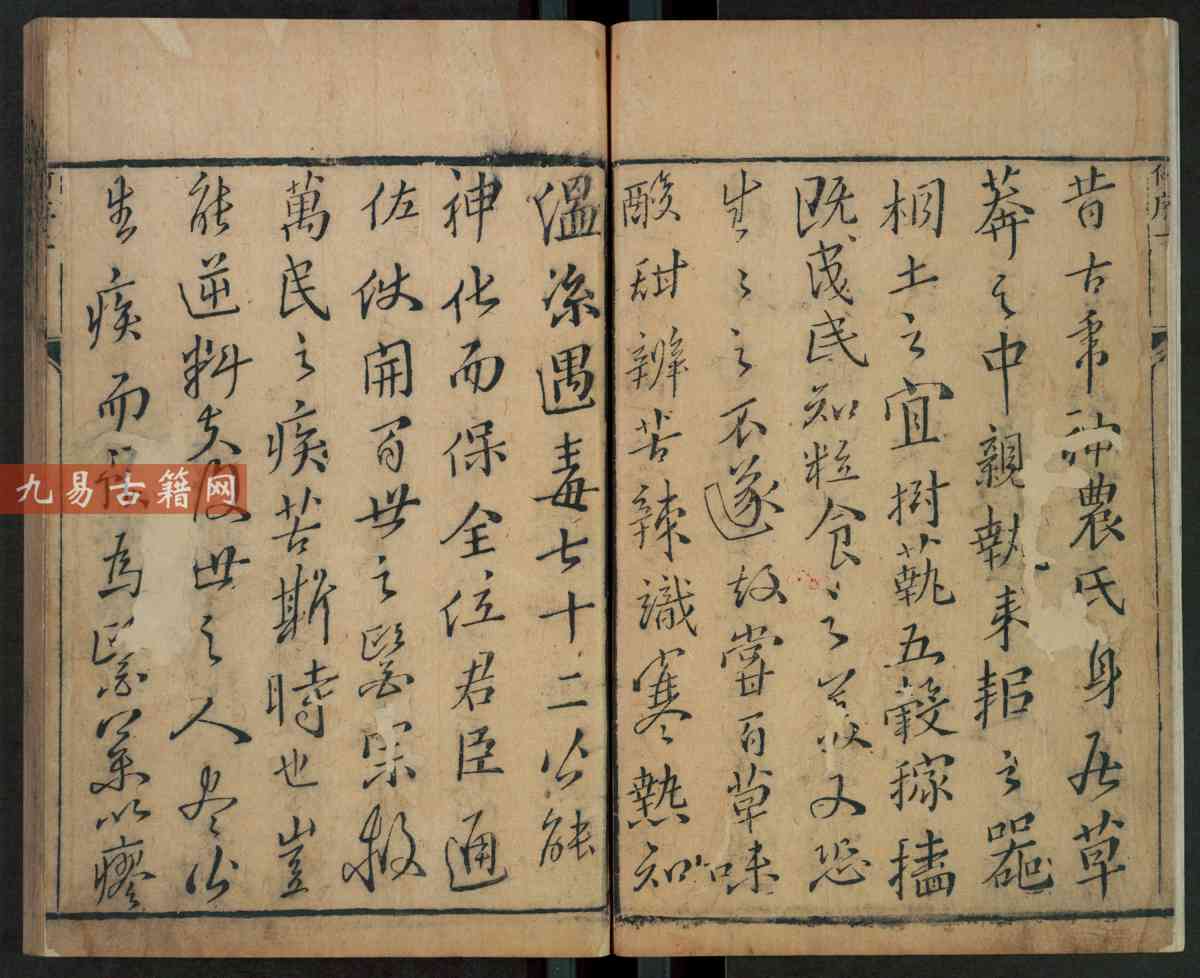 昔古帝神農氏身居草
莽之中親執耒耜之器
相土之宜樹蓺五穀稼穡
既成民知粒食之美又恐
生生之不遂故嘗百草味
酸甜辨苦辣識寒熱知
溫涼遇毒七十二以能
神化而保全位君臣通
佐使開百世之醫宗救
萬民之疾苦斯時也豈
能逆料夫後世之人盡以
生疾而為醫業以瘳
九易古籍网